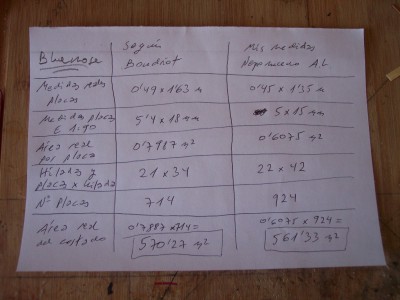 Bluenose
Según
Boudriot
Mis medidas
Nepomuceno A.L.
Medidas reales
placas
0'49 x 1'63 m
0'45 x 1'35 m
Medidas placas
E 1:90
5'4 x 18 mm
5 x 15 mm
Área real
por placa
0'7987 m²
0'6075 m²
Hiladas y
placas x hilada
21 x 34
22 x 42
Nº Placas
714
924
Área real
un costado
0'7987 x 714 =
570'27 m²
0'6075 x 924 =
561'33 m²